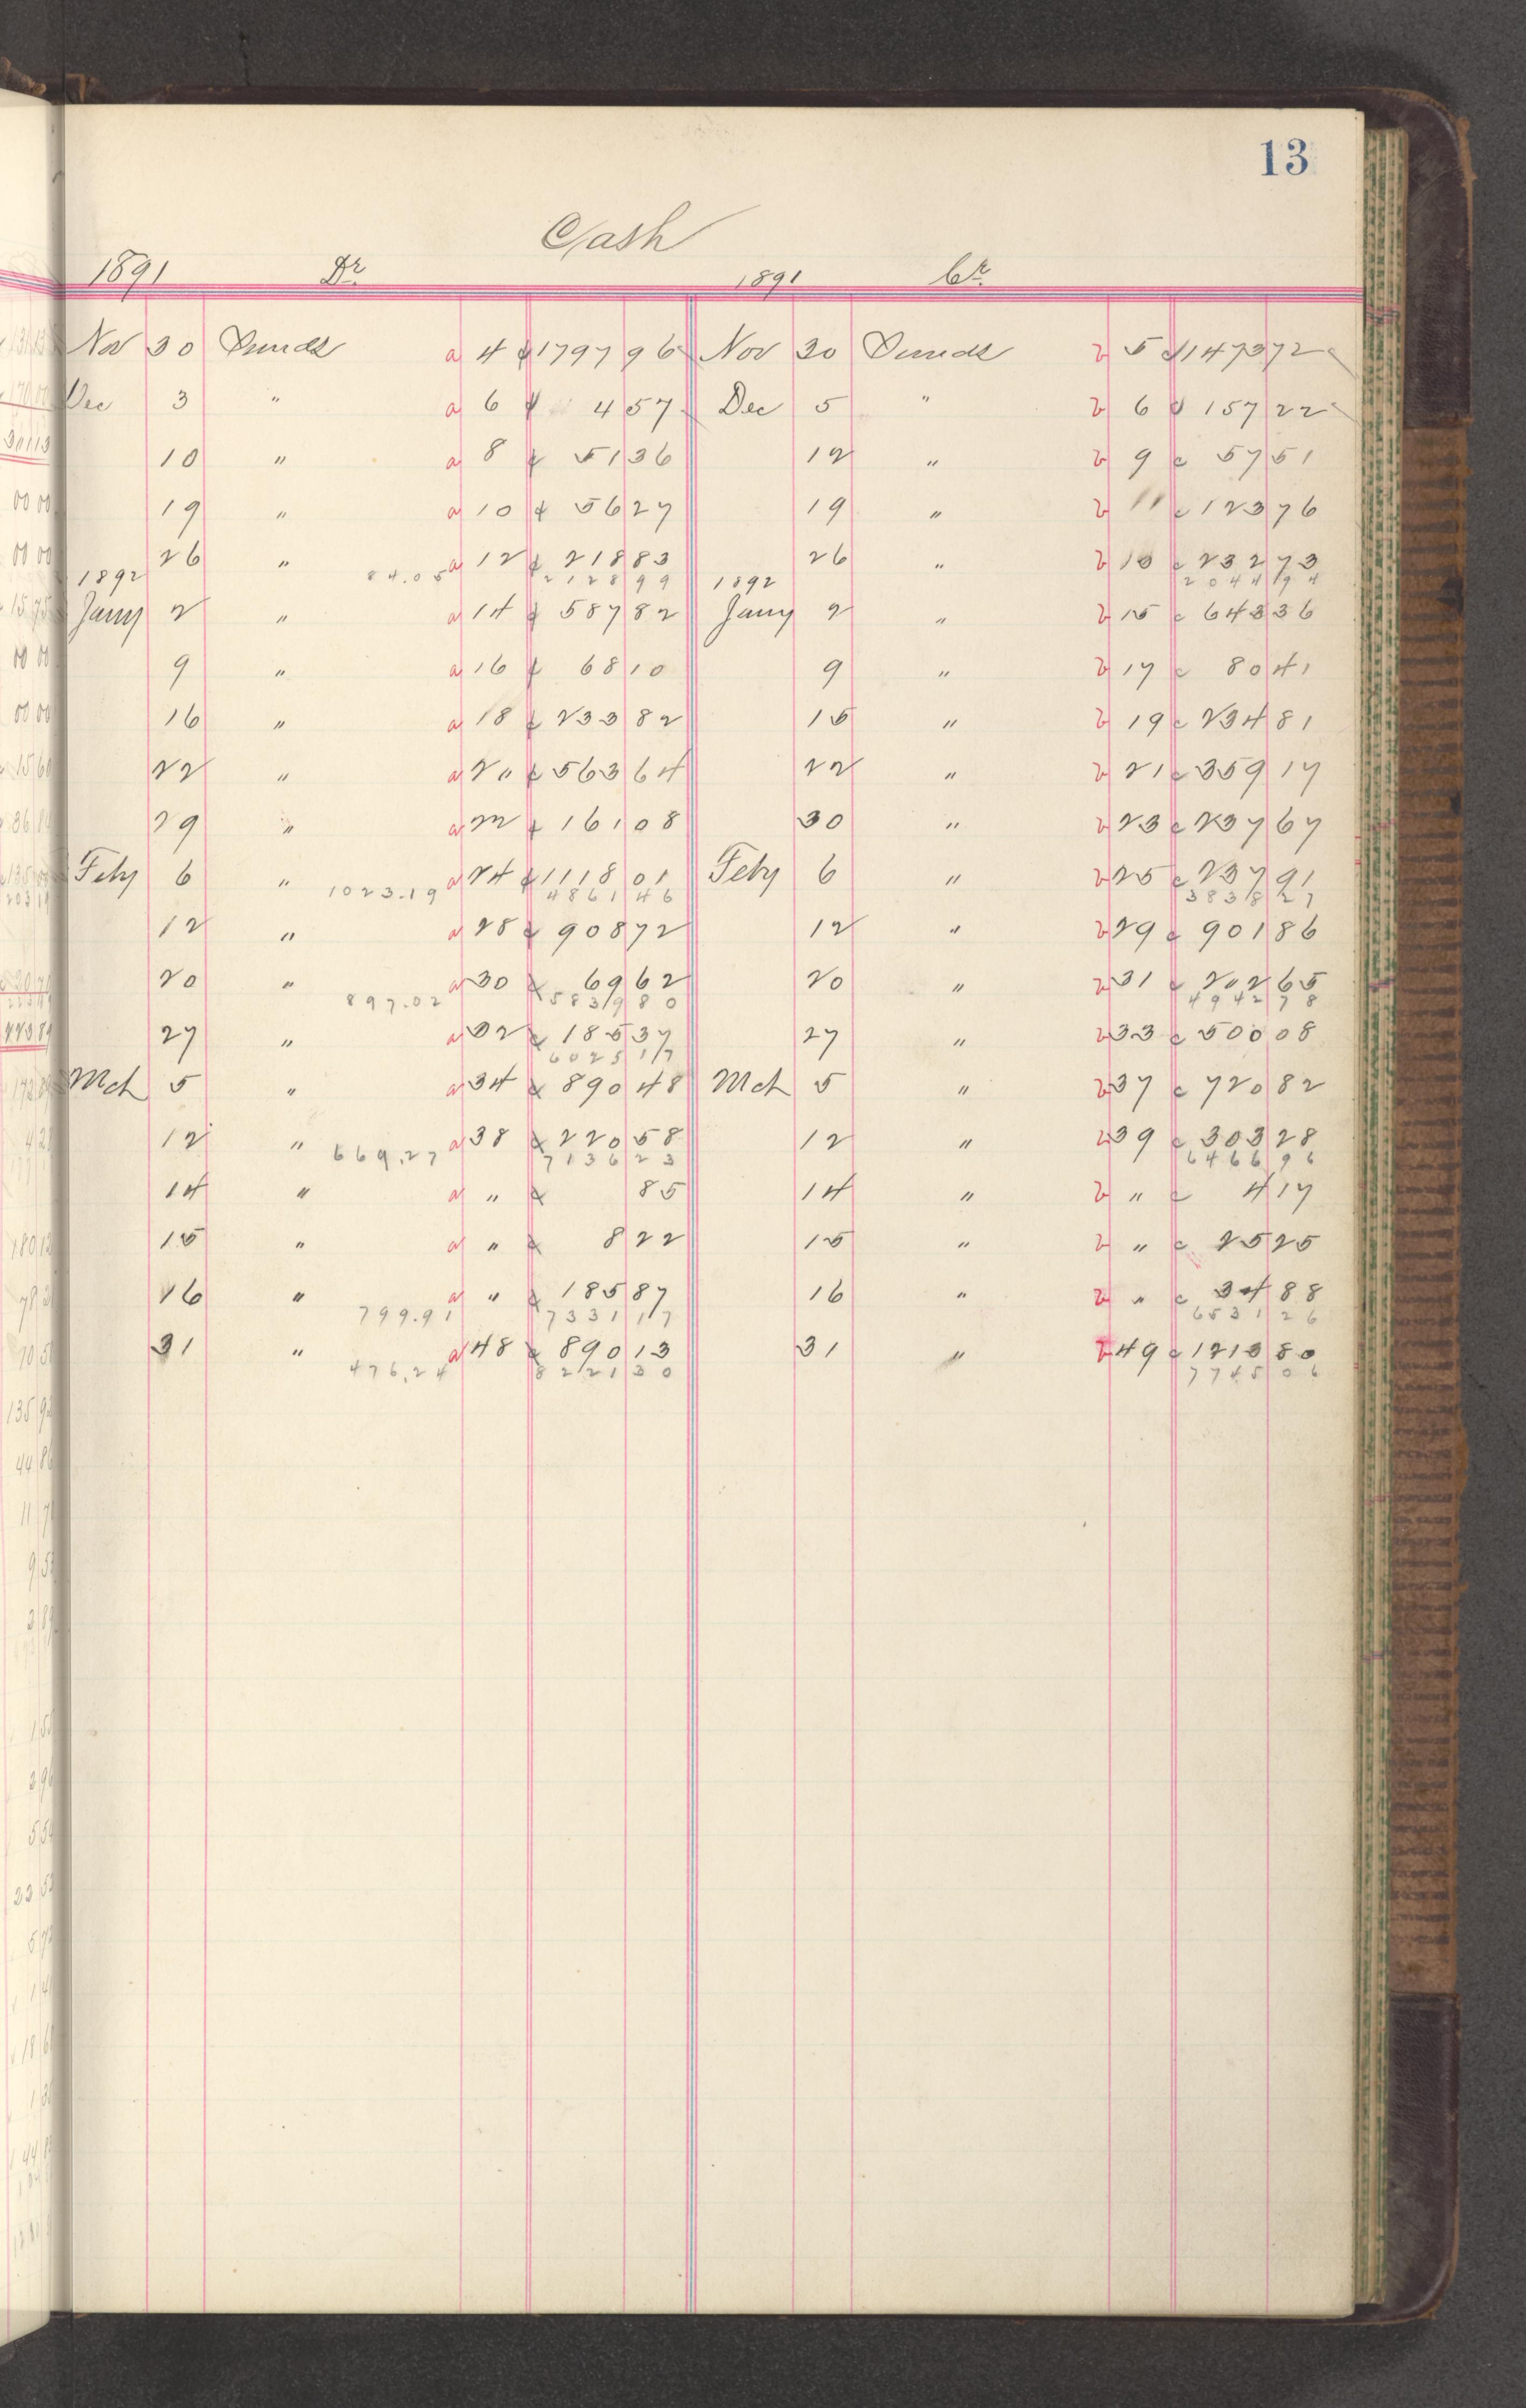 13
Cash
1891 Dr. 1891 Cr.
Nov 30 Sunds a 4 ¢ 1797 96 Nov 30 Sunds b 5 ¢ 1473 72
Dec 3 " a 6 ¢ 4 57 Dec 5 " b 6 ¢ 157 22
10 " a 8 ¢ 51 36 12 " b 9 c 57 51
19 " a 10 ¢ 56 27 19 " b 11 c 123 76
26 " a 12 ¢ 218 83 26 " b 13 c 232 73
1892 84.05 2128 99 1892 2044 94
Jany 2 " a 14 ¢ 587 82 Jany 2 " b 15 c 643 36
9 " a 16 ¢ 68 10 9 " b 17 c 80 41
16 " a 18 ¢ 233 82 15 " b 19 c 234 81
22 " a 20 ¢ 563 64 22 " b 21 c 359 17
29 " a 22 ¢ 161 08 30 " b 23 c 237 67
Feby 6 " a 24 ¢ 1118 01 Feby 6 " b 25 c 237 91
1023.19 4861 46 3838 27
12 " a 28 ¢ 908 72 12 " b 29 c 901 86
20 " a 30 ¢ 69 62 20 " b 31 c 202 65
897.02 5839 80 4942 78
27 " a 32 ¢ 185 37 27 " b 33 c 500 08
6025 17
Mch 5 " a 34 ¢ 890 48 Mch 5 " b 37 c 720 82
12 " a 38 ¢ 220 58 12 " b 39 c 303 28
669.27 7136 23 6466 96
14 " a " ¢ 85 14 " b " c 4 17
15 " a " ¢ 8 22 15 " b " c 25 25
16 " a " ¢ 185 87 16 " b " c 34 88
799.91 7331 17 6531 26
31 " a 48 ¢ 890 13 31 " b 49 c 1213 80
476.24 8221 30 7745 06